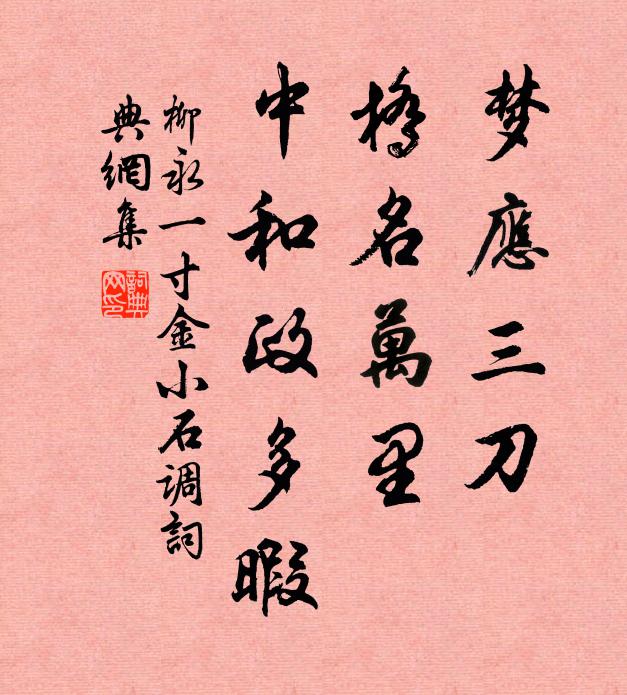 梦應三刀
橋名萬里
中和政多暇
柳永一寸金小石调詞
典網集
詞典
网印